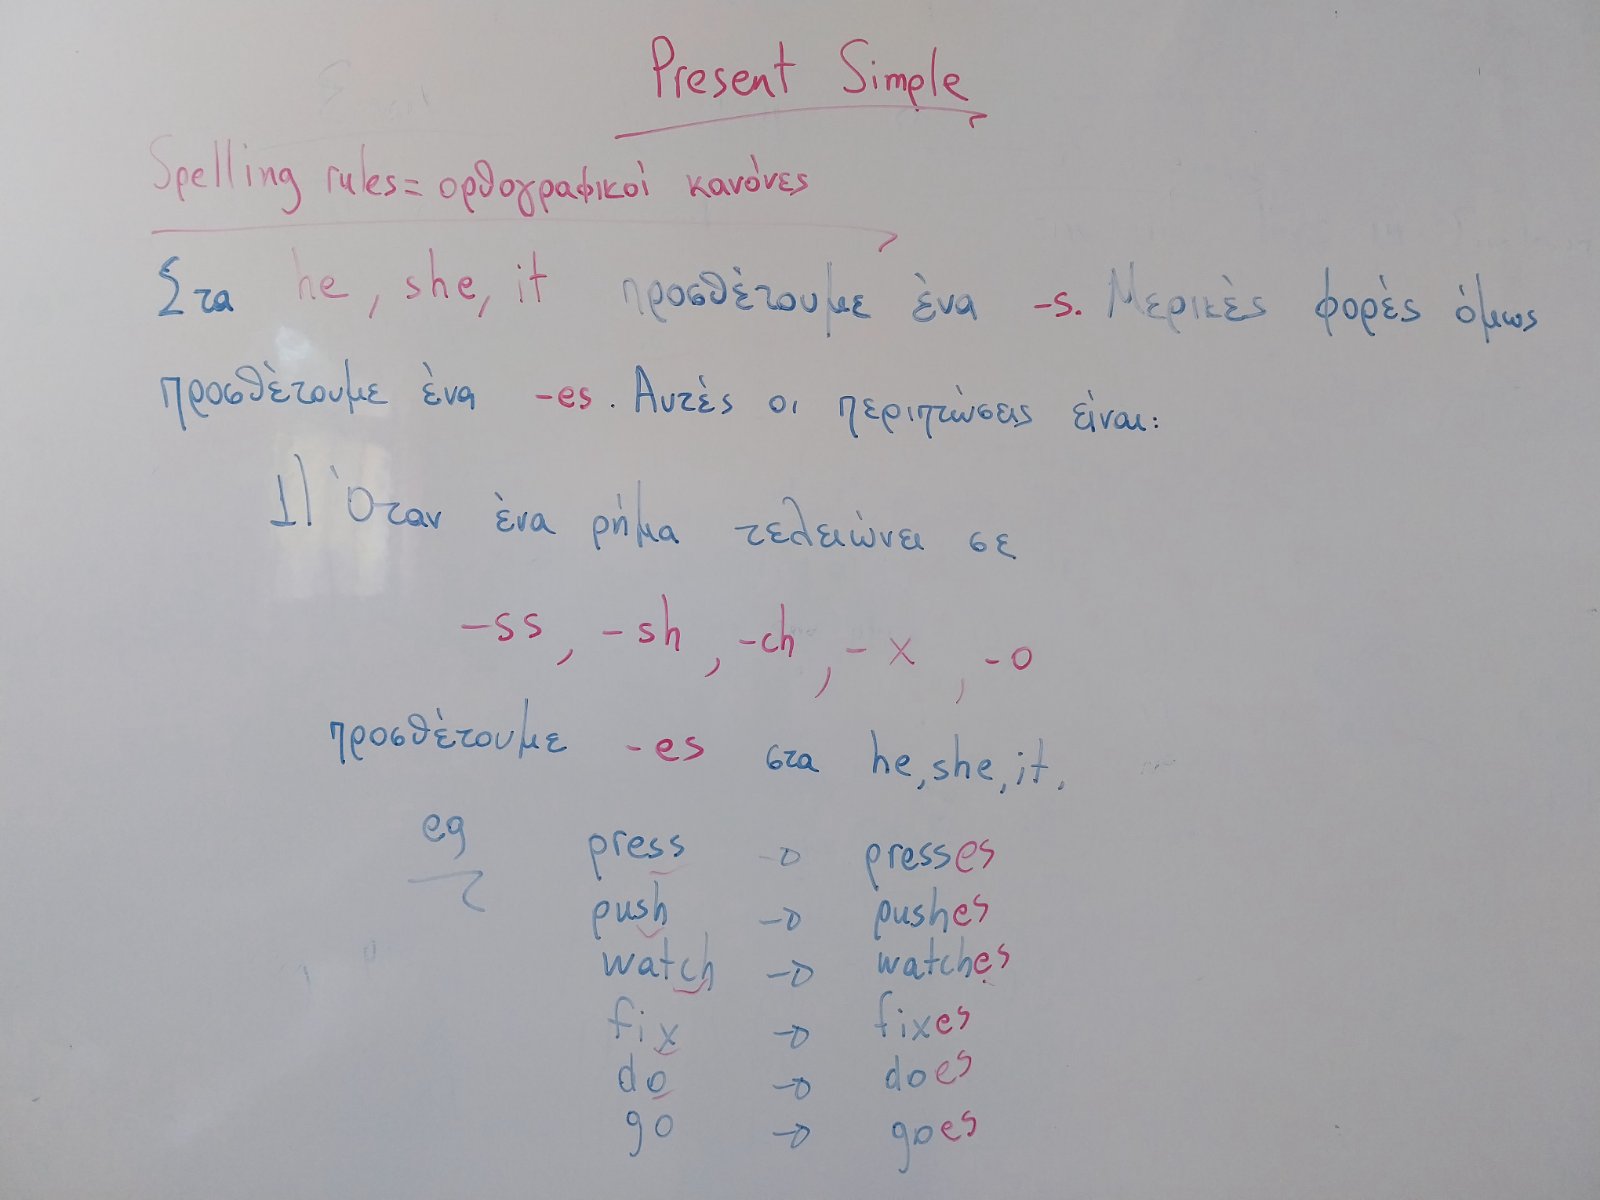 Present Simple
Spelling rules = ορθογραφικοί κανόνες
Στα he, she, it προσθέτουμε ένα -s. Μερικές φορές όμως
προσθέτουμε ένα -es. Αυτές οι περιπτώσεις είναι:
1) Όταν ένα ρήμα τελειώνει σε
-ss, -sh, -ch, -x, -o
προσθέτουμε -es στα he, she, it.
eg press → presses
push → pushes
watch → watches
fix → fixes
do → does
go → goes